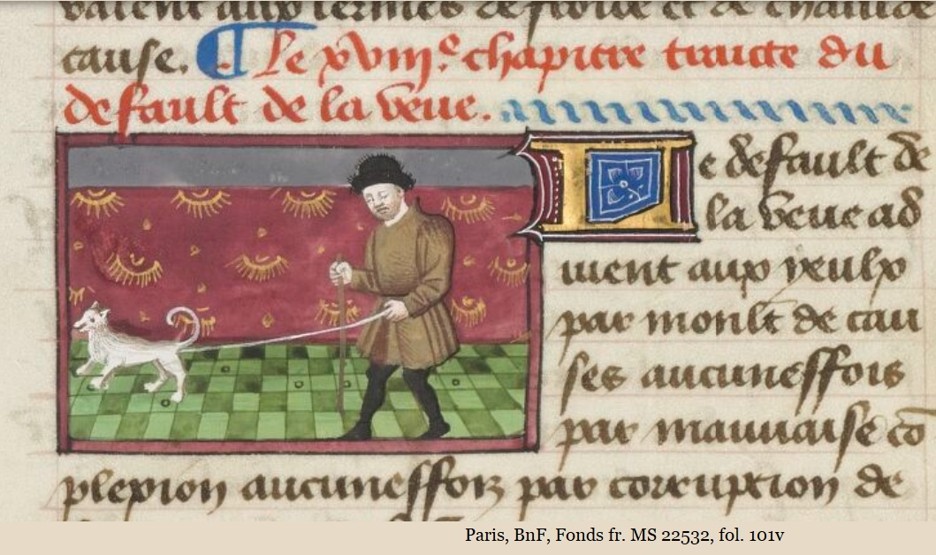 cause. ¶ Le xviije. chapitre traicte du
default de la veue.
Le default de
la veue ad
uient aux yeulx
par moult de cau
ses aucuneffois
par mauuaise cō
plexion aucuneffoiz par corruption de
Paris, BnF, Fonds fr. MS 22532, fol. 101v